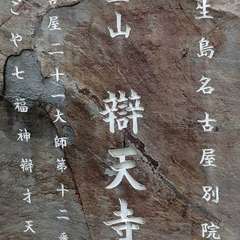 生島名古屋別院
山 辯天寺
古屋二十一大師第十二番
ごや七福神辯才天